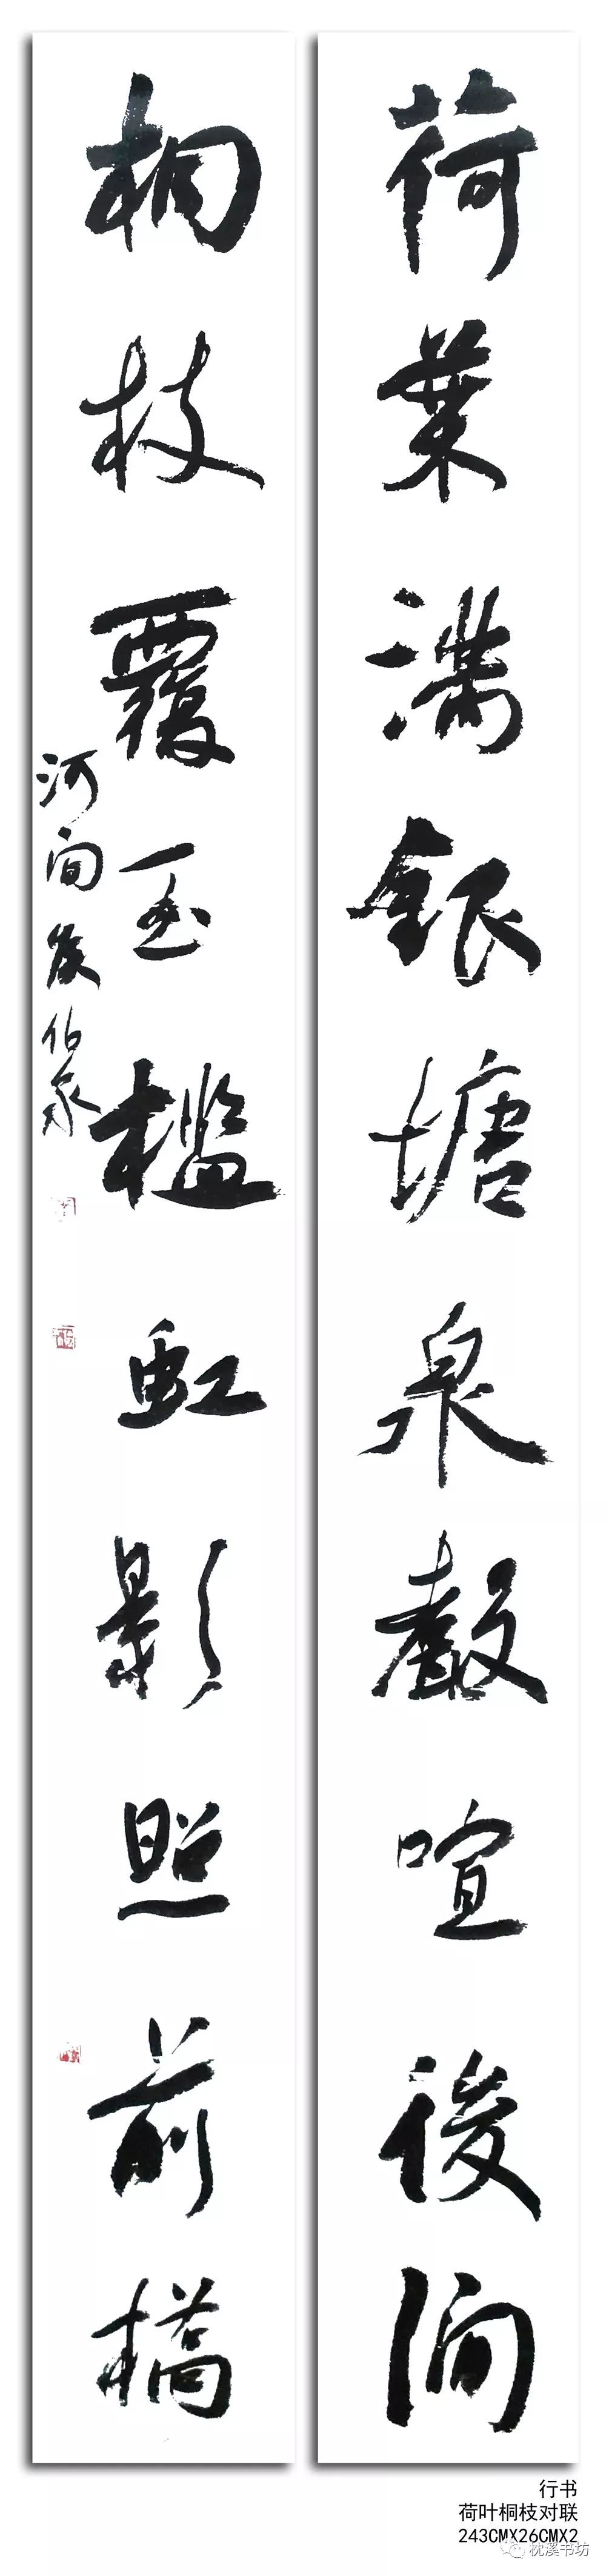 荷葉満銀塘泉聲喧後澗
桐枝覆玉檻虹影照前橋
河間
行书
荷叶桐枝对联
243CMX26CMX2
枕溪书坊